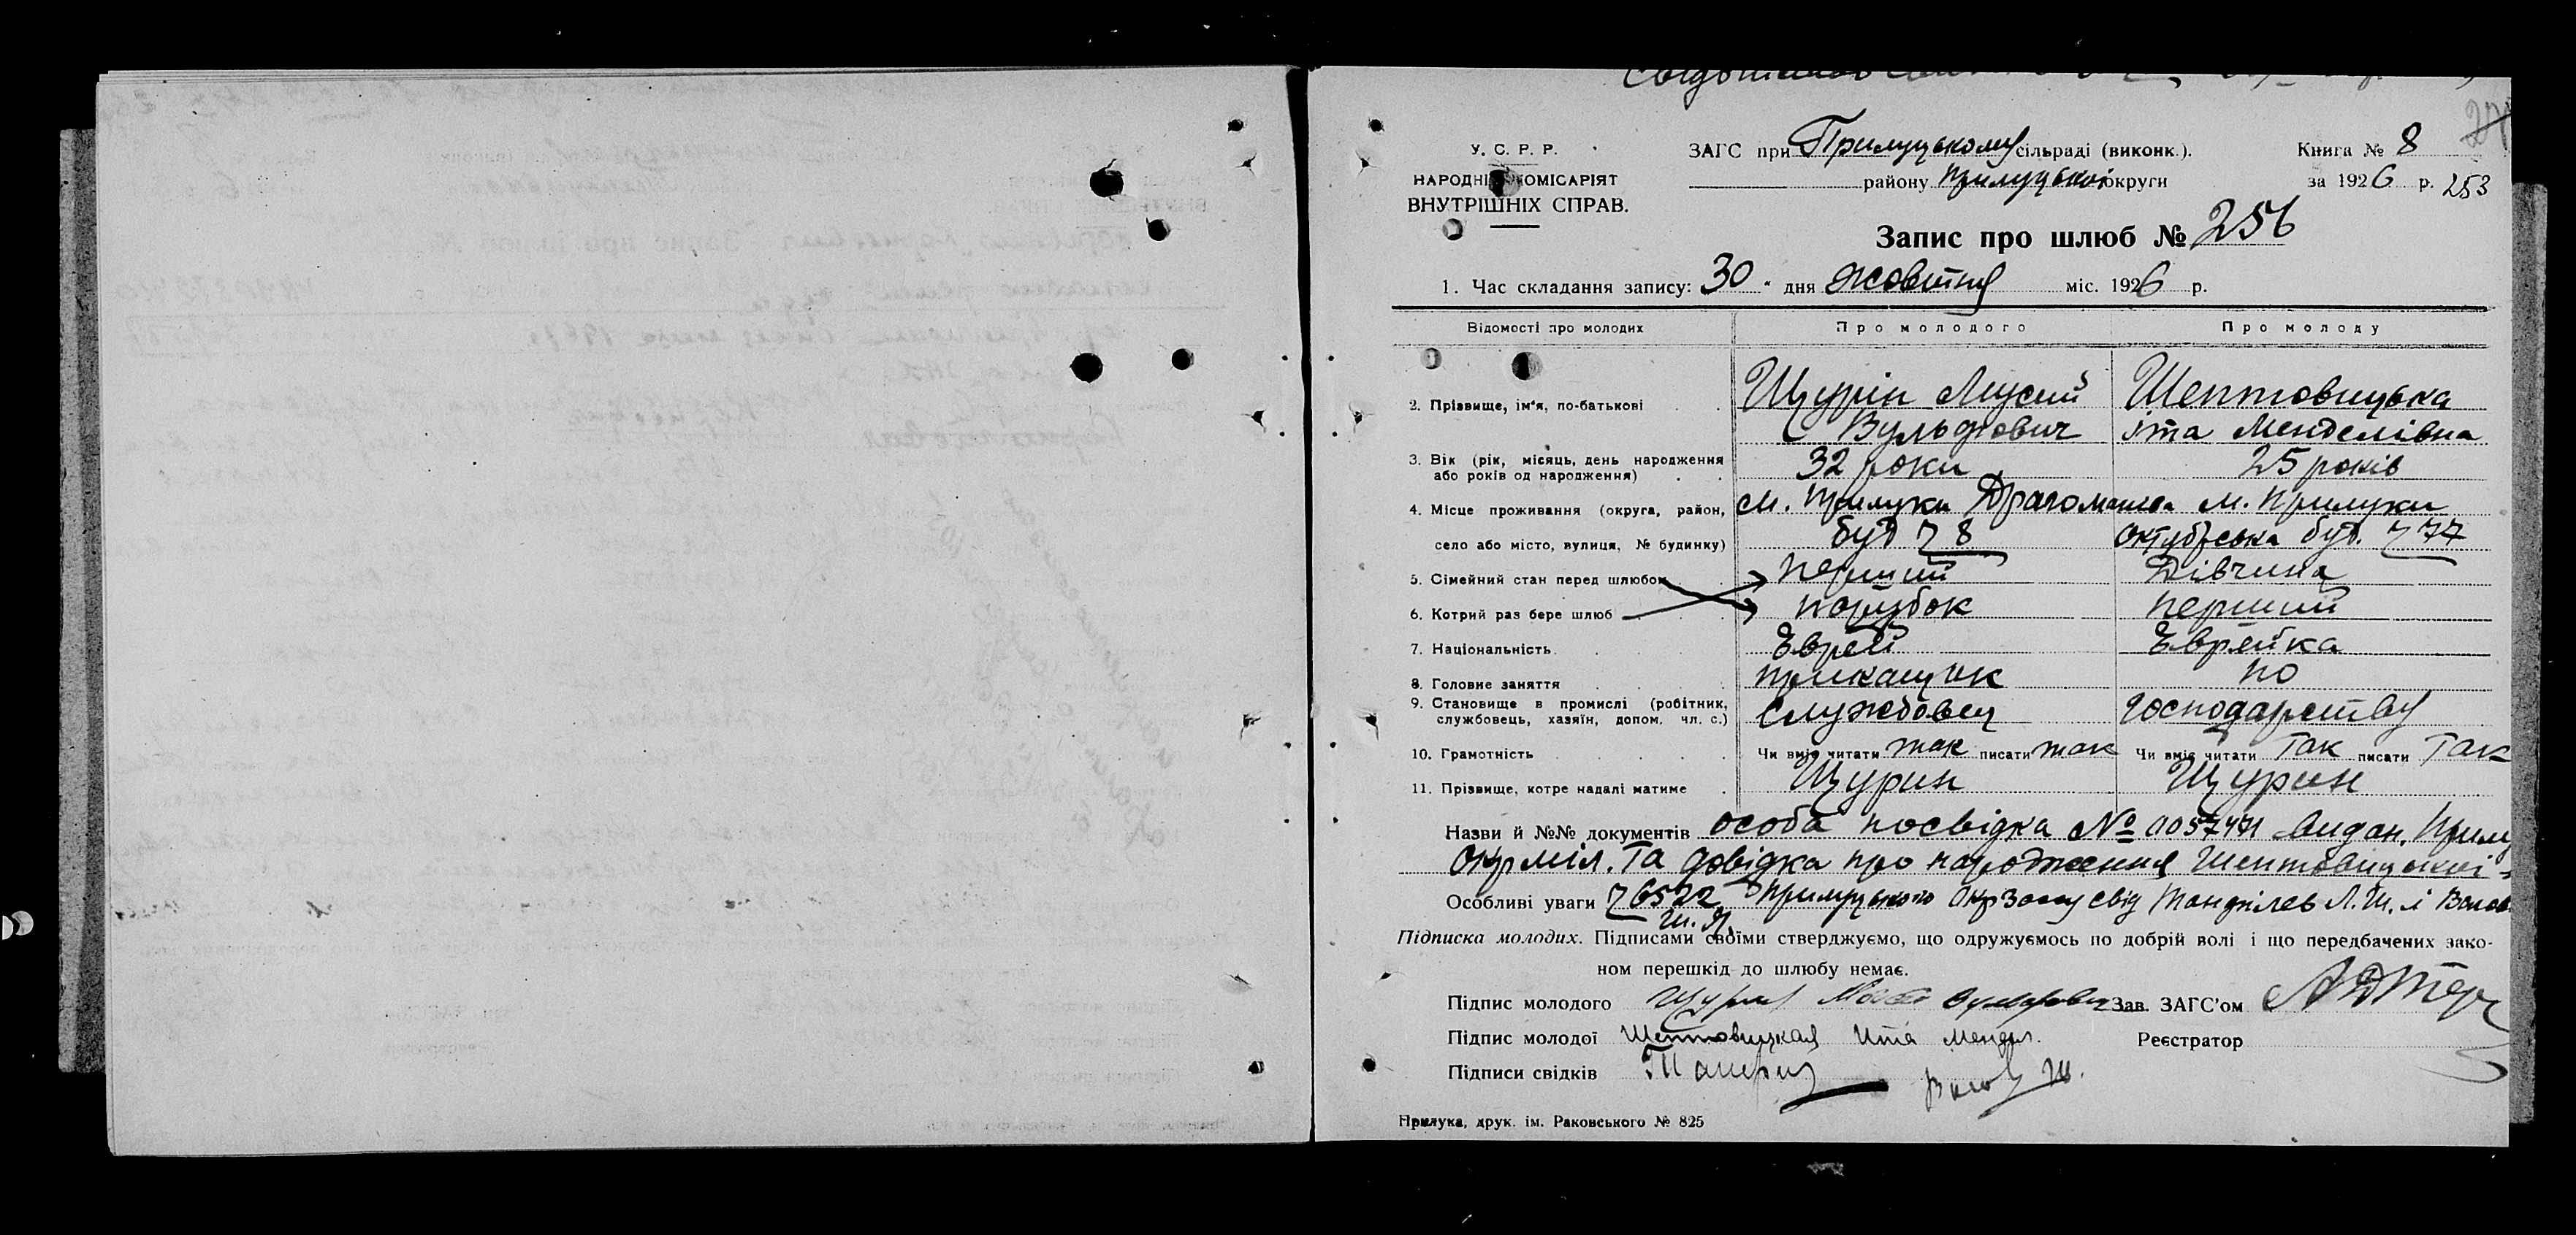 У. С. Р. Р.
НАРОДНІЙ КОМІСАРІЯТ
ВНУТРІШНІХ СПРАВ.
ЗАГС при Прилуцькому сільраді (виконк.).
району Прилуцької округи
Книга № 8
за 1926 р. 253
Запис про шлюб № 256
1. Час складання запису: 30 " дня жовтня міс. 1926 р.
Відомості про молодих Про молодого Про молоду
2. Прізвище, ім'я, по-батькові Щурін Мусий Шептовицька
Вульфович Іта Менделівна
3. Вік (рік, місяць, день народження 32 роки 25 років
або років од народження)
4. Місце проживання (округа, район, м. Прилуки Драгоманова м. Прилуки
село або місто, вулиця, № будинку) буд № 8 Октубрська буд. № 77
5. Сімейний стан перед шлюбом перший Дівчина
6. Котрий раз бере шлюб парубок перший
7. Національність Еврей Еврейка
8. Головне заняття прикащик по
9. Становище в промислі (робітник, службовець, хазяїн, допом. чл. с.) службовец господарству
10. Грамотність Чи вміє читати так писати так Чи вміє читати так писати так
11. Прізвище, котре надалі матиме Щурин Щурин
Назви й №№ документів особа посвідка № 0057471 видан. Прилу
Окрміл. та довідка про народження Шептовицької
Особливі уваги № 6522 Прилуцького Окр свід Л. Ш. і
Ш. Я.
Підписка молодих. Підписами своїми стверджуємо, що одружуємось по добрій волі і що передбачених зако-
ном перешкід до шлюбу немає.
Підпис молодого Щурин Зав. ЗАГС'ом
Підпис молодої Шептовицкая Ита Мендел. Реєстратор
Підписи свідків
Прилука, друк. ім. Раковського № 825